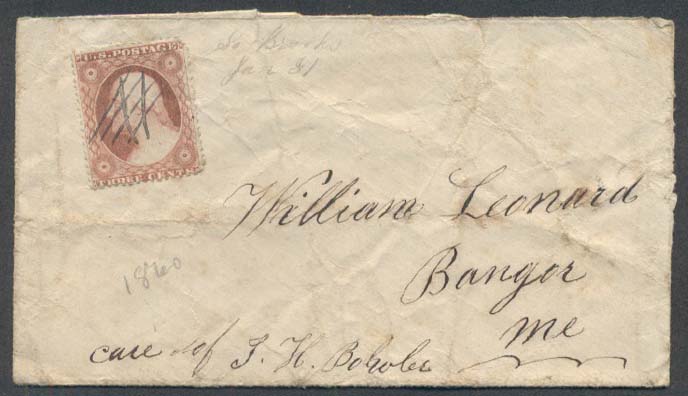 U.S. POSTAGE
THREE CENTS
So Brooks
Jan 31
William Leonard
Bangor
Me
1860
care of J. H.